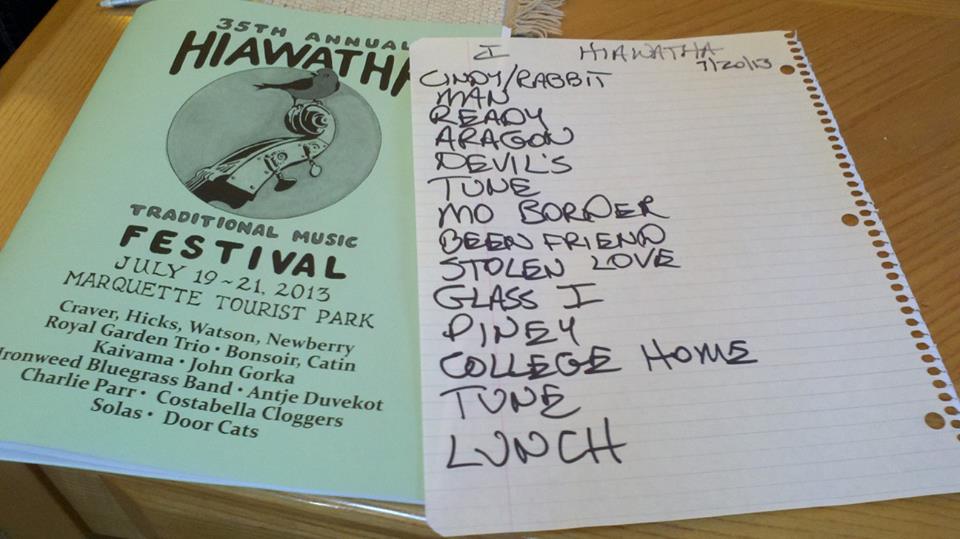 35TH ANNUAL
HIAWATHA
TRADITIONAL MUSIC
FESTIVAL
JULY 19~21, 2013
MARQUETTE TOURIST PARK
Craver, Hicks, Watson, Newberry
Royal Garden Trio • Bonsoir, Catin
Kaivama • John Gorka
Ironweed Bluegrass Band • Antje Duvekot
Charlie Parr • Costabella Cloggers
Solas • Door Cats
I HIAWATHA
7/20/13
CINDY/RABBIT
MAN
READY
ARAGON
DEVIL'S
TUNE
MO BORDER
BEEN FRIEND
STOLEN LOVE
GLASS I
PINEY
COLLEGE HOME
TUNE
LUNCH